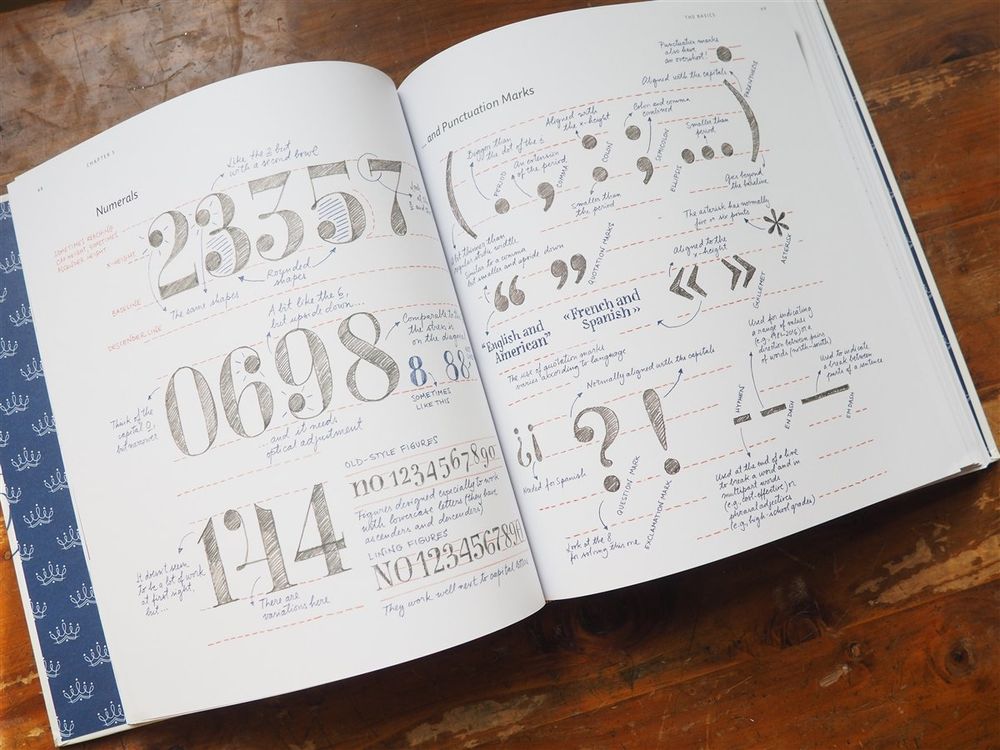 CHAPTER 3
Numerals
Like the 2 but
with a second bowl
SOMETIMES REACHING
CAP HEIGHT, SOMETIMES
ASCENDER HEIGHT
X-HEIGHT
23357
BASELINE
The same shapes
Rounded
shapes
DESCENDER LINE
A bit like the 6,
but upside down...
Comparable to
the stress is
on the diagonal
0698
8. 88
SOMETIMES
LIKE THIS
Think of the
capital O,
but narrower
and it needs
optical adjustment
OLD-STYLE FIGURES
no 1234567890
Figures designed especially to work
with lowercase letters (they have
ascenders and descenders)
LINING FIGURES
NO 1234567890
They work well next to capital letters
144
It doesn't seem
to be a lot of work
at first sight,
but...
There are
variations here
THE BASICS
...and Punctuation Marks
Punctuation marks
also have
an overshoot!
Aligned with the capitals
PARENTHESIS
Bigger than
the dot of the i
PERIOD
An extension
of the period
COMMA
Aligned with
the x-height
COLON
Smaller than
the period
Colon and comma
combined
SEMICOLON
Smaller than
period
ELLIPSIS
( . , : ; ... )
Goes beyond
the baseline
A bit thinner than
regular stem width
Similar to a comma
but smaller and upside down
“ ”
QUOTATION MARKS
Aligned to the
x-height
« »
GUILLEMET
The asterisk has normally
five or six points
*
ASTERISK
“English and
American”
«French and
Spanish»
The use of quotation marks
varies according to language
Normally aligned with the capitals
¿¡
Needed for Spanish
?
QUESTION MARK
!
EXCLAMATION MARK
Look at the 8
for solving this one
Used for indicating
a range of values
(e.g., 1981–2016) or a
direction between pairs
of words (north–south)
Used to indicate
a break between
parts of a sentence
HYPHEN
- – —
EN DASH
EM DASH
Used at the end of a line
to break a word and in
multipart words
(e.g., cost-effective) or
phrasal adjectives
(e.g., high-school grades)